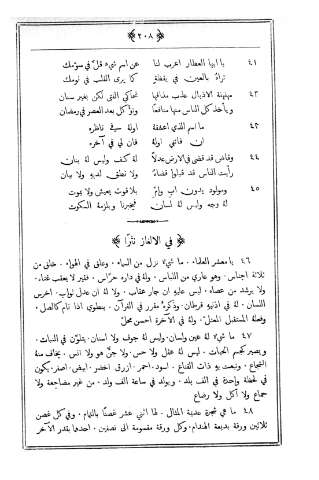 ٢٠٨
٤١ يا ايها العطار اعرب لنا عن اسم شيء قل في سومك
تراهُ بالعين في يقظةٍ كما يرى القلب في نومك
٤٢ مهفهفة الاذيال عذب مذاقها تحاكي القنا لكن بغير سنان
ويأخذ كل الناس منها منافعًا وتؤكل بعد العصر في رمضان
٤٣ ما اسم الذي اعشقهُ اولهُ في ناظره
ان فاتني اولهُ فان لي في آخره
٤٤ وقاضٍ قد قضى في الارض عدلًا لهُ كف وليس لهُ بنان
رأيت الناس قد قبلوا قضاهُ ولا نطق لديهِ ولا بيان
٤٥ ومولود بدون ابٍ وامٍّ بلا قوت يعيش ولا يموت
لهُ وجه وليس لهُ لسان فيخبرنا ويلزمهُ السكوت
في الالغاز نثرًا
٤٦ يا معشر العلماء. ما شيء نزل من السماء. وعلق في الهواء. خلق من
ثلاثة اجناس. وهو عاري من اللباس. ولهُ في داره حراس. فقير لا يعقب غناء.
ولا يرشد من عصاه. ليس عليهِ ان جار عقاب. ولا لهُ ان عدل ثواب. اخرس
اللسان. لهُ في اذنيهِ قرطان. وذكرهُ مقرر في القرآن. ينطوي اذا نام كالصل.
وفعلهُ المستقبل المعتل. ولهُ في الآخرة احسن محل
٤٧ ما شيء لهُ عين ولسان. وليس لهُ جوف ولا اسنان. يتلون في النبات.
ويصير كجسم الحيات. ليس لهُ عقل ولا حس. ولا جن هو ولا انس. يخاف منهُ
الشجاع. وتتعبد بهِ ذات القناع. اسود. احمر. ازرق. اخضر. ابيض. اصفر. يكون
في لحظة واحدة في الف بلد. ويولد في ساعة الف ولد. من غير مضاجعة ولا
جماع ولا اكل ولا رضاع
٤٨ ما هي شجرة عديمة المثال. لها اثني عشر غصنًا بالتمام. وفي كل غصن
ثلاثين ورقة بديعة الهندام. وكل ورقة مقسومة الى نصفين. احدهما بقدر الآخر